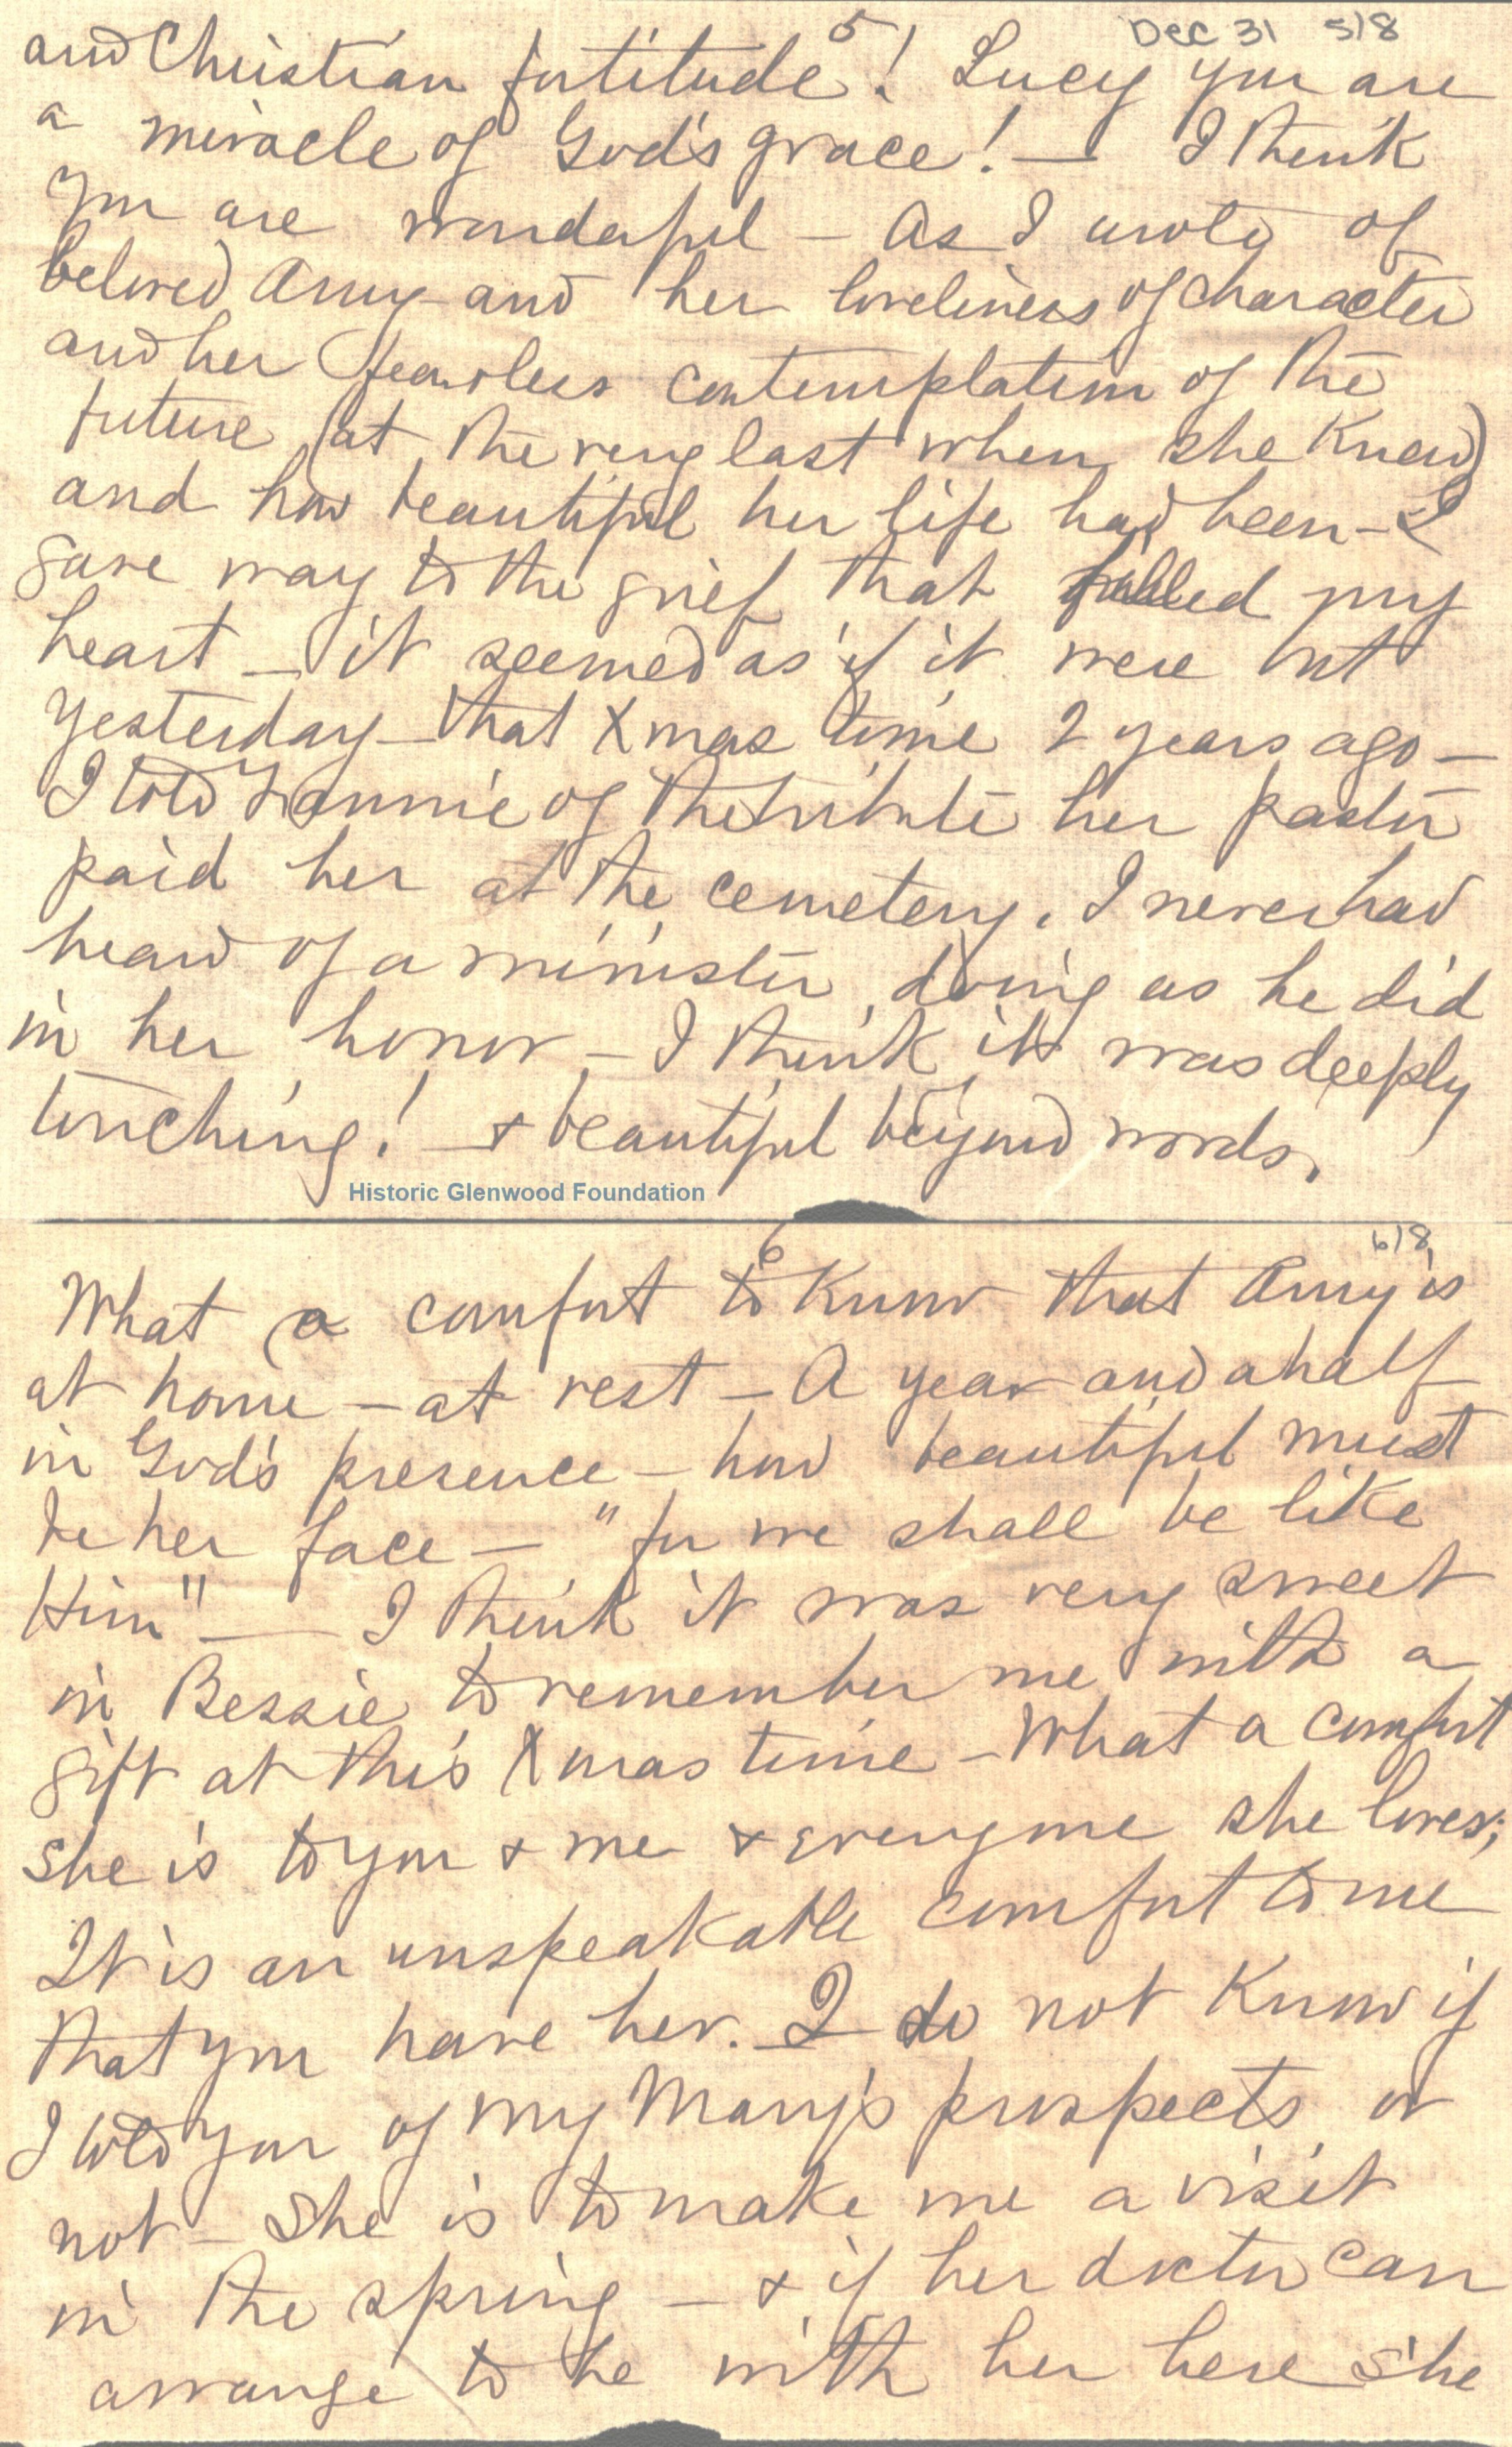 5 Dec 31 5/8
and Christian fortitude! Lucy you are
a miracle of God's grace! — I think
you are wonderful — As I wrote of
beloved Amy and her loveliness of character
and her fearless contemplation of the
future (at the very last when she knew)
and how beautiful her life had been — I
gave way to the grief that filled my
heart — it seemed as if it were but
yesterday — that Xmas time 2 years ago —
I told Fannie of the tribute her pastor
paid her at the cemetery. I never had
heard of a minister doing as he did
in her honor — I think it was deeply
touching! — & beautiful beyond words.
Historic Glenwood Foundation
6 6/8
What a comfort to know that Amy is
at home — at rest — A year and a half
in God's presence — how beautiful must
be her face — "for we shall be like
Him" — I think it was very sweet
in Bessie to remember me with a
gift at this Xmas time — What a comfort
she is to you & me & everyone she loves;
It is an unspeakable comfort to me
that you have her. I do not know if
I told you of my Mary's prospects or
not — She is to make me a visit
in the spring — & if her doctor can
arrange to be with her here she